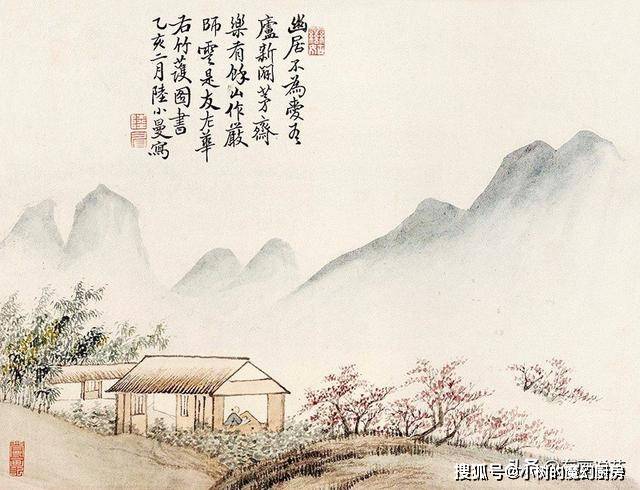 幽居不為愛吾
廬新開茅齋
樂有餘山作嚴
師雲是友左華
右竹護圖書
乙亥二月陸小曼寫
搜狐号@小树的魔幻厨房